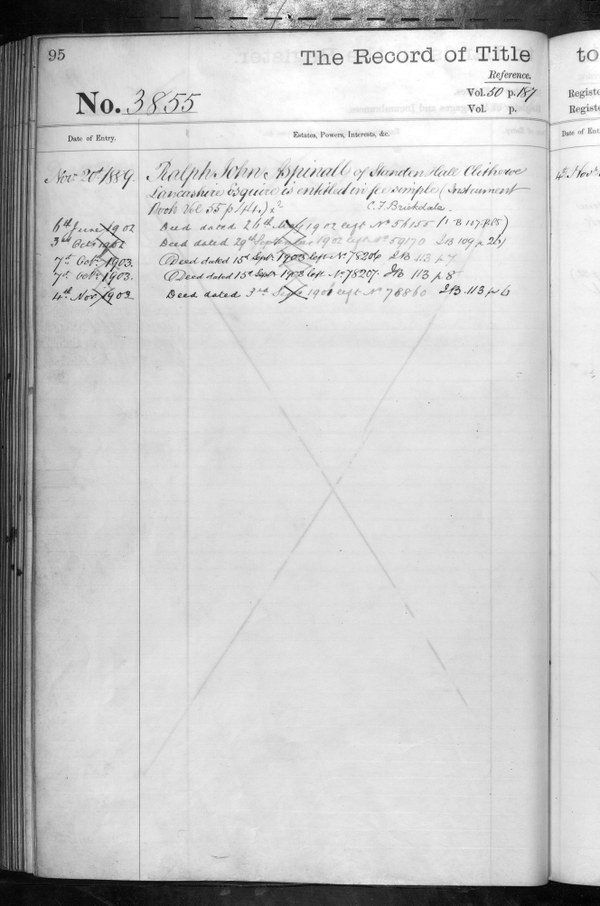 95
The Record of Title
to
Reference.
No. 3855
Vol. 50 p. 187
Vol. p.
Registe
Registe
Date of Entry.
Estates, Powers, Interests, &c.
Date of Ent
Nov 20th 1889. Ralph John Aspinall of Standen Hall Clitheroe
Lancashire Esquire is entitled in fee simple (Instrument
Book Vol 55 p 141.)
C. F. Brickdale
6th June 1902 Deed dated 26th 1902 Cert No 56155
3rd Oct 1902 Deed dated 29th September 1902 Cert No 59170 IB 109 p 26
7th Octr. 1903. Deed dated 15th Septr. 1903 Cert. No. 78206 IB 113 p 7
7th Octr. 1903. Deed dated 15th Septr. 1903 Cert. No. 78207. IB 113 p. 8
4th Nov. 1903 Deed dated 3rd Cert No 78860 IB. 113 p 6
4th Nov